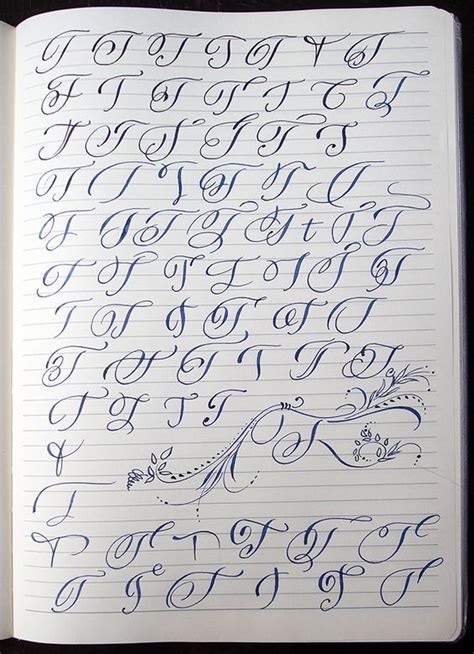 T T T T T T T
T T T T T T T T
T T T T T T T
T T T T T T T
T T T T T t T T
T T T T T T T
T T T T T T
T T T T T T T
T T T T T
T
T
T Te T T T T Te
T Te T T T T Te